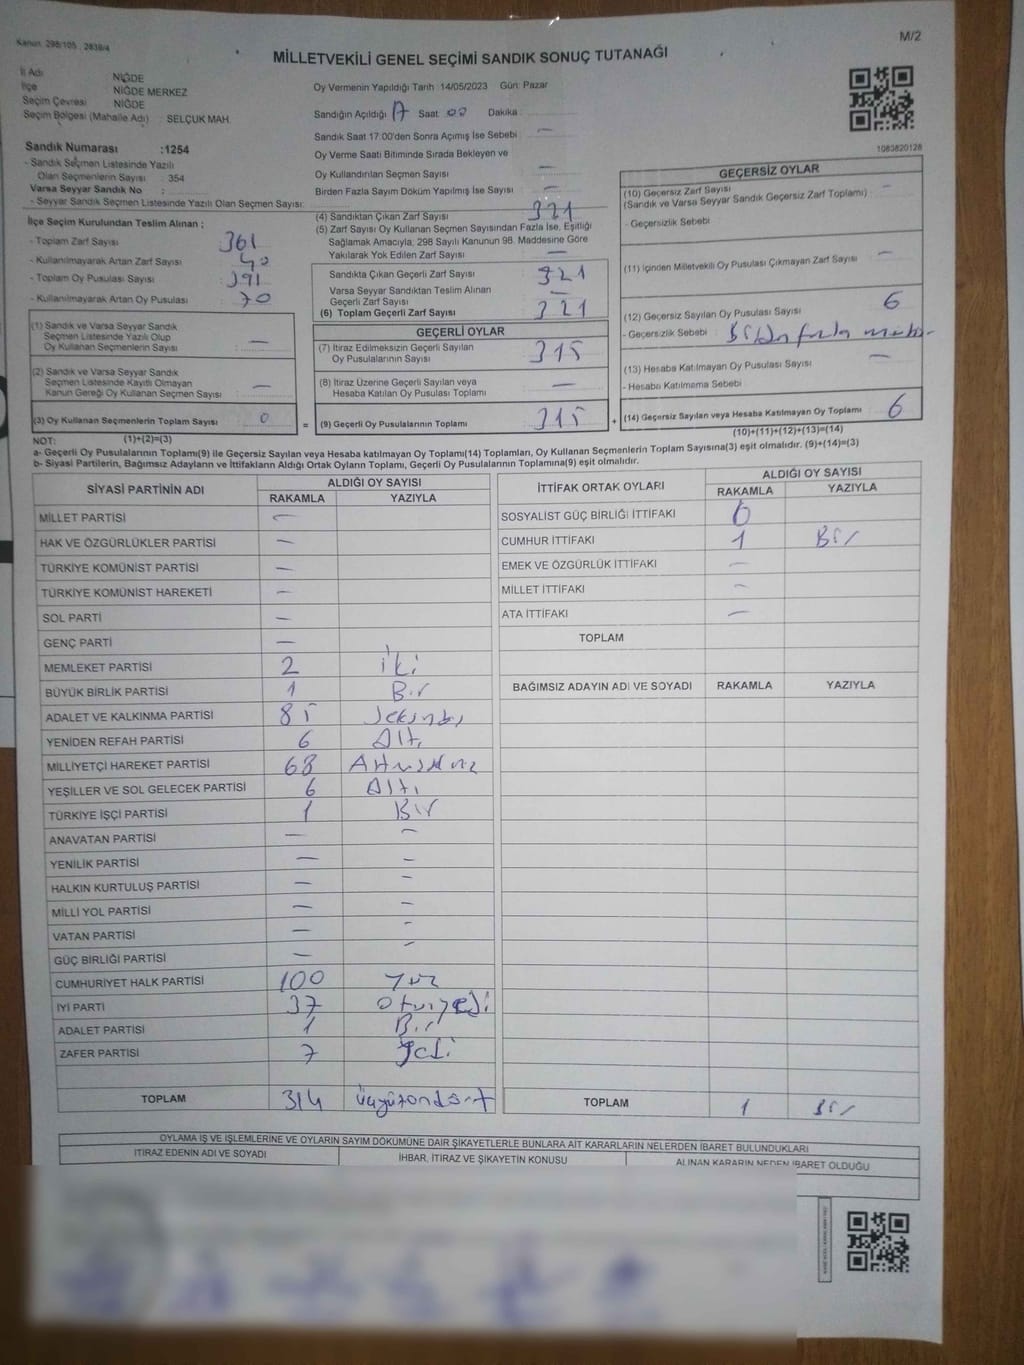 Kanun: 298/105 , 2839/4
M/2
MİLLETVEKİLİ GENEL SEÇİMİ SANDIK SONUÇ TUTANAĞI
İl Adı NİĞDE
İlçe NİĞDE MERKEZ
Seçim Çevresi NİĞDE
Seçim Bölgesi (Mahalle Adı) : SELÇUK MAH.
Sandık Numarası :1254
- Sandık Seçmen Listesinde Yazılı
Olan Seçmenlerin Sayısı : 354
Varsa Seyyar Sandık No :
- Seyyar Sandık Seçmen Listesinde Yazılı Olan Seçmen Sayısı:
Oy Vermenin Yapıldığı Tarih 14/05/2023 Gün: Pazar
Sandığın Açıldığı Saat 00 Dakika
Sandık Saat 17.00'den Sonra Açımış İse Sebebi : —
Oy Verme Saati Bitiminde Sırada Bekleyen ve
Oy Kullandırılan Seçmen Sayısı —
Birden Fazla Sayım Döküm Yapılmış İse Sayısı —
1083820128
İlçe Seçim Kurulundan Teslim Alınan ;
- Toplam Zarf Sayısı 361
- Kullanılmayarak Artan Zarf Sayısı : 40
- Toplam Oy Pusulası Sayısı : 391
- Kullanılmayarak Artan Oy Pusulası : 70
(1) Sandık ve Varsa Seyyar Sandık
Seçmen Listesinde Yazılı Olup
Oy Kullanan Seçmenlerin Sayısı : —
(2) Sandık ve Varsa Seyyar Sandık
Seçmen Listesinde Kayıtlı Olmayan
Kanun Gereği Oy Kullanan Seçmen Sayısı : —
(3) Oy Kullanan Seçmenlerin Toplam Sayısı : 0
(1)+(2)=(3)
(4) Sandıktan Çıkan Zarf Sayısı 321
(5) Zarf Sayısı Oy Kullanan Seçmen Sayısından Fazla İse, Eşitliği
Sağlamak Amacıyla; 298 Sayılı Kanunun 98. Maddesine Göre
Yakılarak Yok Edilen Zarf Sayısı —
Sandıkta Çıkan Geçerli Zarf Sayısı 321
Varsa Seyyar Sandıktan Teslim Alınan
Geçerli Zarf Sayısı —
(6) Toplam Geçerli Zarf Sayısı 321
GEÇERLİ OYLAR
(7) İtiraz Edilmeksizin Geçerli Sayılan
Oy Pusulalarının Sayısı 315
(8) İtiraz Üzerine Geçerli Sayılan veya
Hesaba Katılan Oy Pusulası Toplamı —
= (9) Geçerli Oy Pusulalarının Toplamı 315 +
GEÇERSİZ OYLAR
(10) Geçersiz Zarf Sayısı —
(Sandık ve Varsa Seyyar Sandık Geçersiz Zarf Toplamı)
- Geçersizlik Sebebi
(11) İçinden Milletvekili Oy Pusulası Çıkmayan Zarf Sayısı —
(12) Geçersiz Sayılan Oy Pusulası Sayısı 6
- Geçersizlik Sebebi : Birden fazla
(13) Hesaba Katılmayan Oy Pusulası Sayısı —
- Hesaba Katılmama Sebebi
(14) Geçersiz Sayılan veya Hesaba Katılmayan Oy Toplamı 6
(10)+(11)+(12)+(13)=(14)
NOT:
a- Geçerli Oy Pusulalarının Toplamı(9) ile Geçersiz Sayılan veya Hesaba katılmayan Oy Toplamı(14) Toplamları, Oy Kullanan Seçmenlerin Toplam Sayısına(3) eşit olmalıdır. (9)+(14)=(3)
b- Siyasi Partilerin, Bağımsız Adayların ve İttifakların Aldığı Ortak Oyların Toplamı, Geçerli Oy Pusulalarının Toplamına(9) eşit olmalıdır.
SİYASİ PARTİNİN ADI
ALDIĞI OY SAYISI
RAKAMLA YAZIYLA
MİLLET PARTİSİ —
HAK VE ÖZGÜRLÜKLER PARTİSİ —
TÜRKİYE KOMÜNİST PARTİSİ —
TÜRKİYE KOMÜNİST HAREKETİ —
SOL PARTİ —
GENÇ PARTİ —
MEMLEKET PARTİSİ 2 iki
BÜYÜK BİRLİK PARTİSİ 1 Bir
ADALET VE KALKINMA PARTİSİ 85
YENİDEN REFAH PARTİSİ 6 Altı
MİLLİYETÇİ HAREKET PARTİSİ 68
YEŞİLLER VE SOL GELECEK PARTİSİ 6 Altı
TÜRKİYE İŞÇİ PARTİSİ 1 Bir
ANAVATAN PARTİSİ — —
YENİLİK PARTİSİ — —
HALKIN KURTULUŞ PARTİSİ — —
MİLLİ YOL PARTİSİ — —
VATAN PARTİSİ — —
GÜÇ BİRLİĞİ PARTİSİ — —
CUMHURİYET HALK PARTİSİ 100 Yüz
İYİ PARTİ 37 otuzyedi
ADALET PARTİSİ 1 Bir
ZAFER PARTİSİ 7 Yedi
TOPLAM 314 üçyüzondört
İTTİFAK ORTAK OYLARI
ALDIĞI OY SAYISI
RAKAMLA YAZIYLA
SOSYALİST GÜÇ BİRLİĞİ İTTİFAKI 0
CUMHUR İTTİFAKI 1 Bir
EMEK VE ÖZGÜRLÜK İTTİFAKI —
MİLLET İTTİFAKI —
ATA İTTİFAKI —
TOPLAM
BAĞIMSIZ ADAYIN ADI VE SOYADI RAKAMLA YAZIYLA
TOPLAM 1 Bir
OYLAMA İŞ VE İŞLEMLERİNE VE OYLARIN SAYIM DÖKÜMÜNE DAİR ŞİKAYETLERLE BUNLARA AİT KARARLARIN NELERDEN İBARET BULUNDUKLARI
İTİRAZ EDENİN ADI VE SOYADI İHBAR, İTİRAZ VE ŞİKAYETİN KONUSU ALINAN KARARIN NEDEN İBARET OLDUĞU